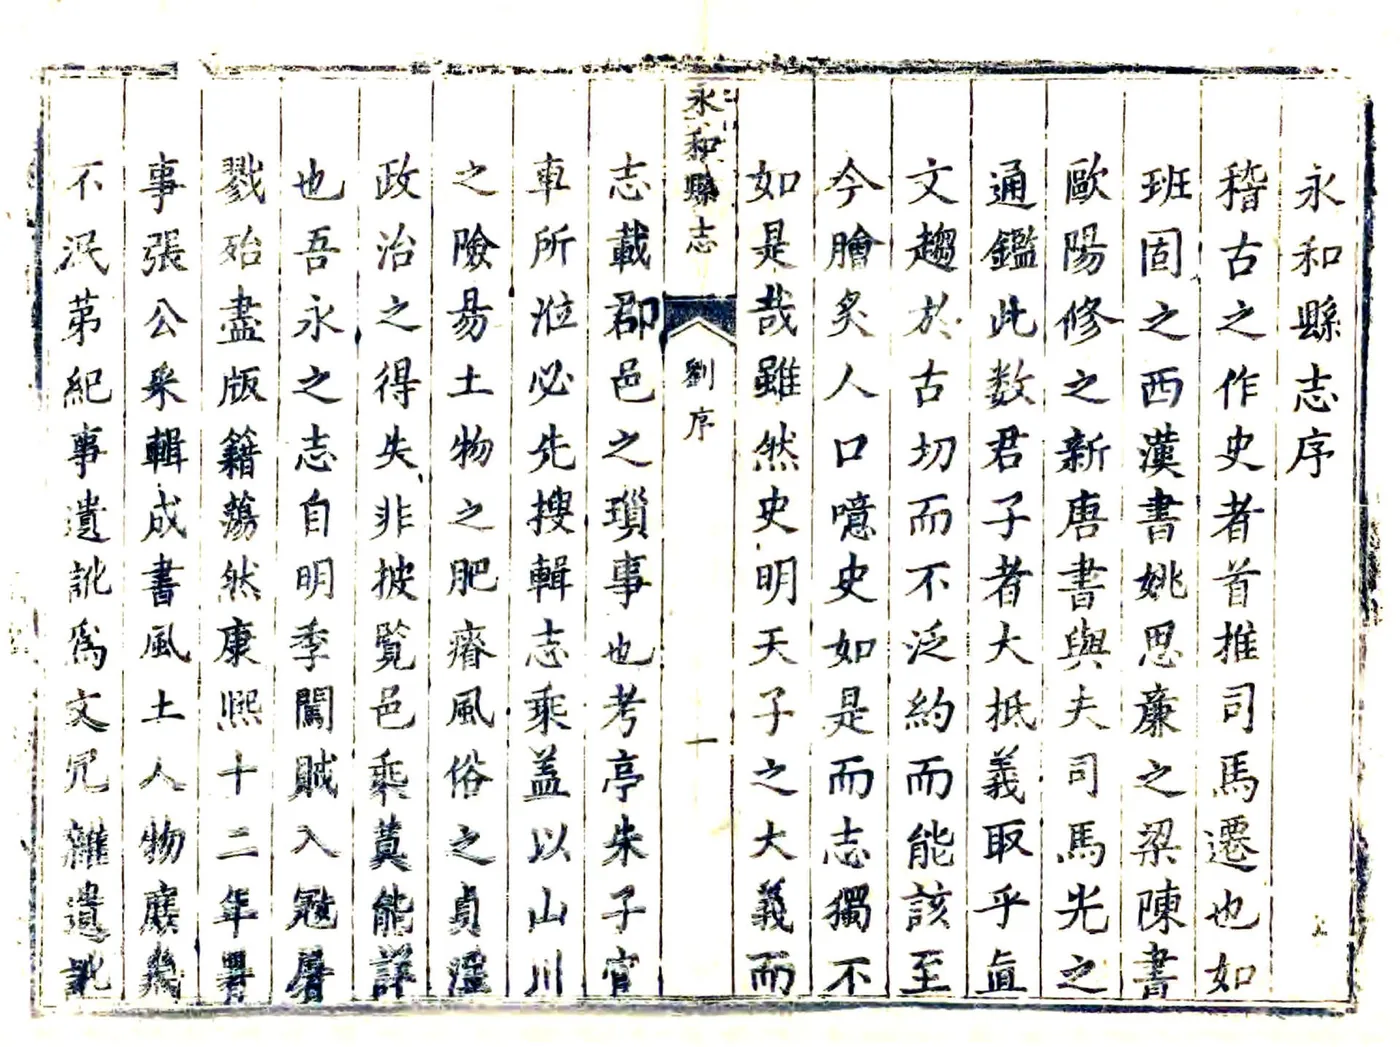 永和縣志序
稽古之作史者首推司馬遷也如
班固之西漢書姚思廉之梁陳書
歐陽修之新唐書與夫司馬光之
通鑑此數君子者大抵義取乎眞
文趨於古切而不泛約而能該至
今膾炙人口噫史如是而志獨不
如是哉雖然史明天子之大義而
永和縣志
劉序
一
志載郡邑之瑣事也考亭朱子官
車所涖必先搜輯志乘盖以山川
之險易土物之肥瘠風俗之貞淫
政治之得失非披覧邑乘莫能詳
也吾永之志自明季闖賊入冦屠
戮殆盡版籍蕩然康熙十二年署
事張公采輯成書風土人物庶幾
不泯苐紀事遺訛為文冗雜遺訛